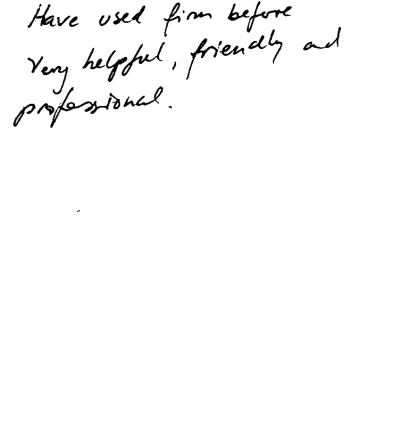 Have used firm before
Very helpful, friendly and
professional.